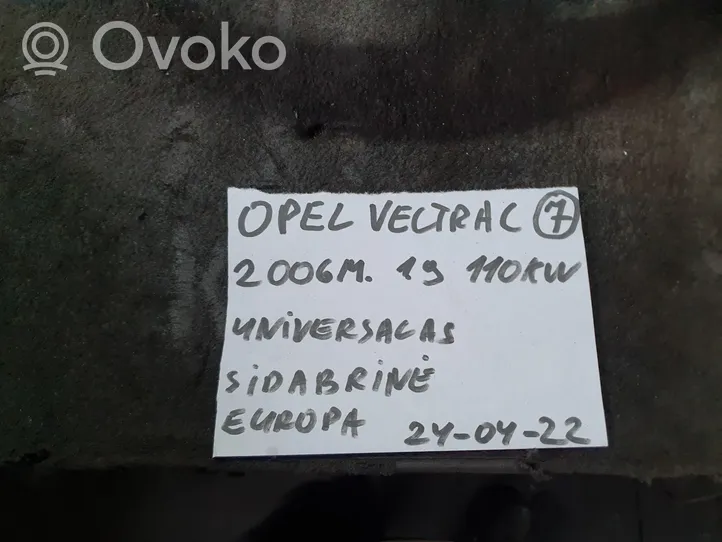 Ovoko
OPEL VECTRA C 7
2006M. 19 110KW
UNIVERSALAS
SIDABRINĖ
EUROPA 24-04-22